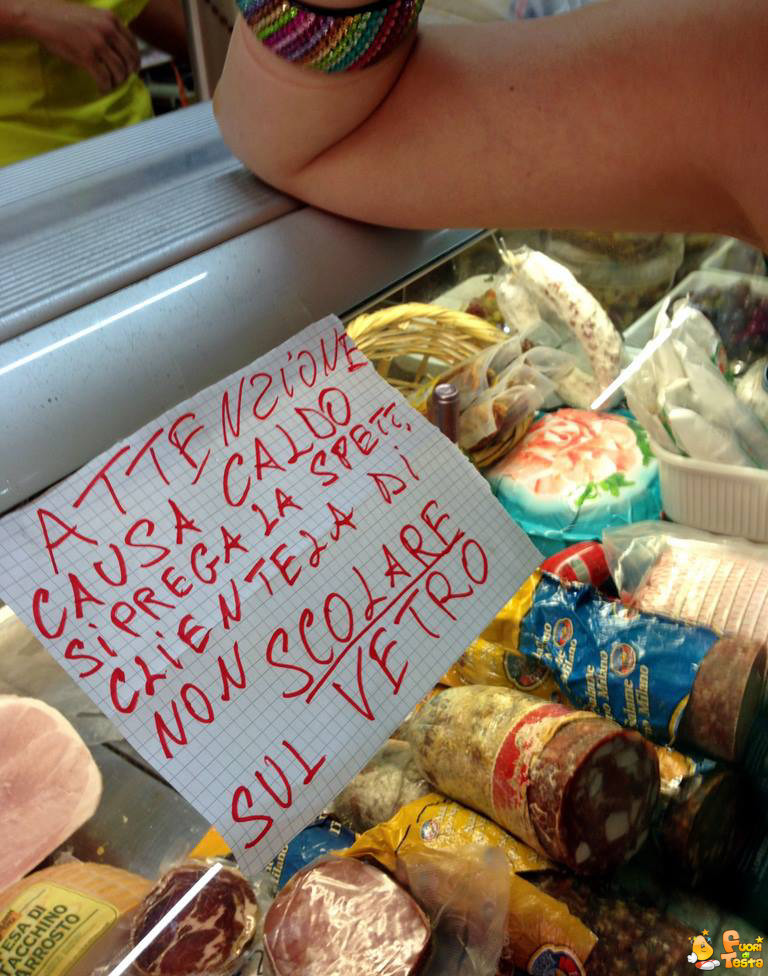 ATTENZIONE
CAUSA CALDO
SI PREGA LA SPETT.
CLIENTELA DI
NON SCOLARE
SUL VETRO
Salame
Milano
ESA DI
TACCHINO
ARROSTO
FUORI
di
TESTA